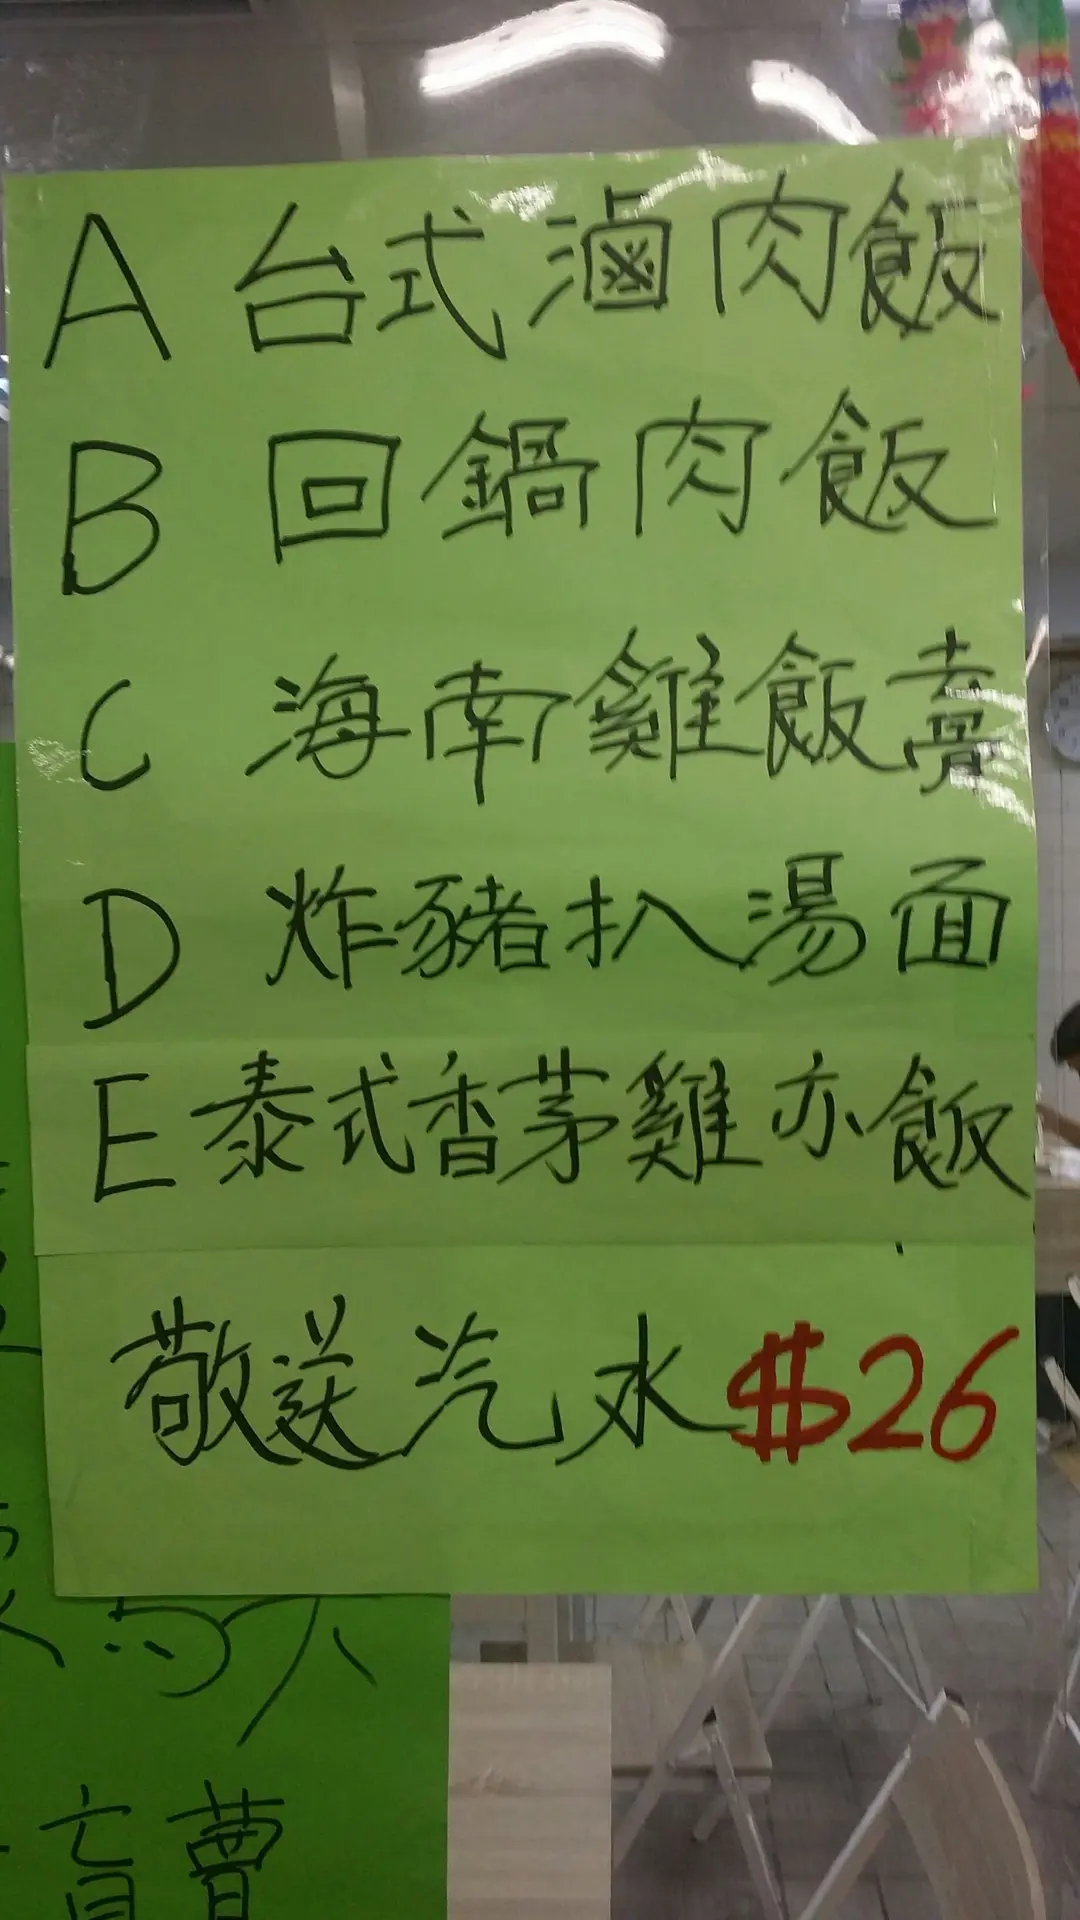 A 台式滷肉飯
B 回鍋肉飯
C 海南雞飯賣
D 炸豬扒湯面
E 泰式香茅雞亦飯
敬送汽水$26